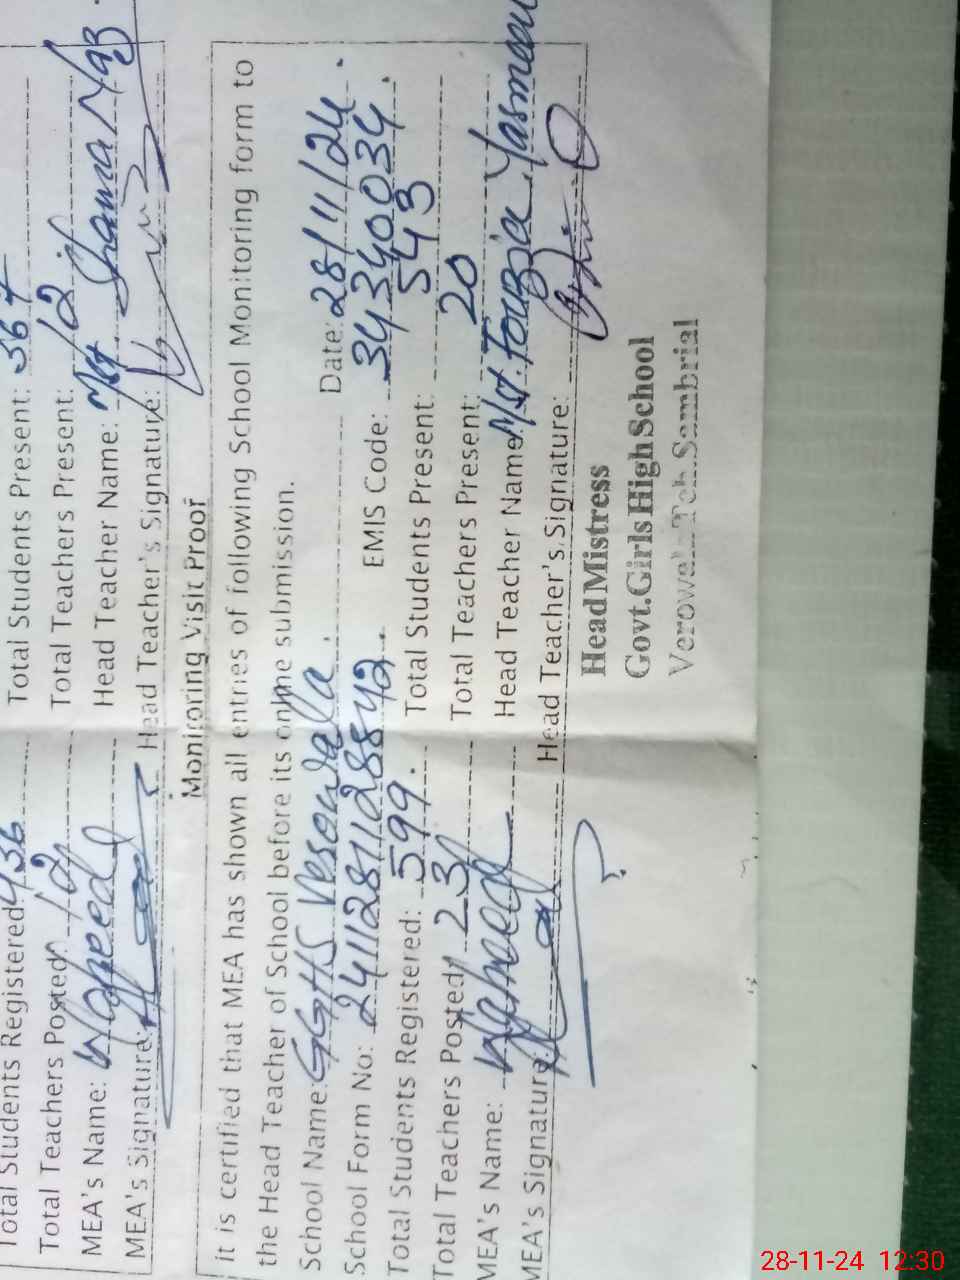 Total Students Registered 436 Total Students Present: 364
Total Teachers Posted: 12 Total Teachers Present: 12
MEA's Name: Waheed Head Teacher Name: Mst Shama Naz
MEA's Signature: Head Teacher's Signature:
Monitoring Visit Proof
it is certified that MEA has shown all entries of following School Monitoring form to
the Head Teacher of School before its online submission.
School Name: GGHS Verowala Date: 28/11/24
School Form No: 2411281128842 EMIS Code: 34340034
Total Students Registered: 599 Total Students Present: 543
Total Teachers Posted: 23 Total Teachers Present: 20
MEA's Name: Waheed Head Teacher Name: Mst. Fouzia Yasmeen
MEA's Signature: Head Teacher's Signature:
Head Mistress
Govt. Girls High School
Verowala Teh. Sambrial
28-11-24 12:30